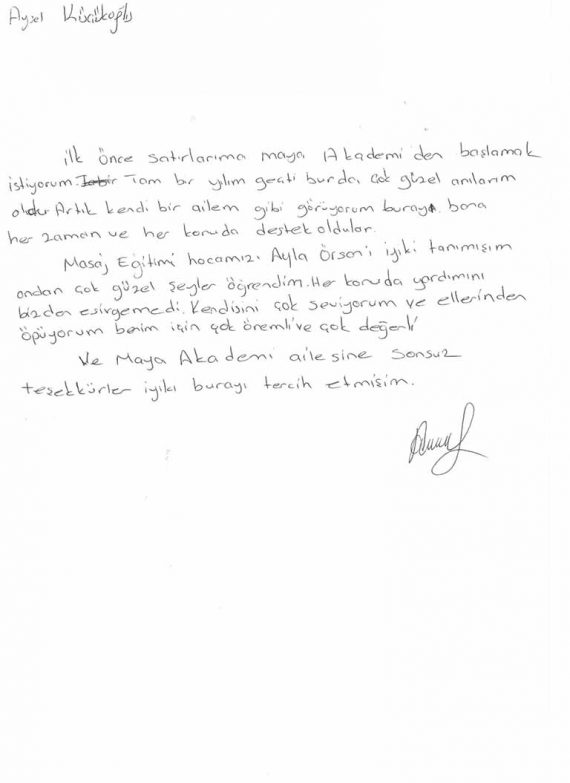 Aysel Küçükoğlu
ilk önce satırlarıma maya Akademi den başlamak
istiyorum. Tam bir yılım geçti burda, çok güzel anılarım
oldu Artık kendi bir ailem gibi görüyorum burayı. bana
her zaman ve her konuda destek oldular.
Masaj Eğitimi hocamızı Ayla Örsen'i iyiki tanımışım
ondan çok güzel şeyler öğrendim. Her konuda yardımını
bizden esirgemedi. Kendisini çok seviyorum ve ellerinden
öpüyorum benim için çok önemli ve çok değerli
Ve Maya Akademi ailesine sonsuz
teşekkürler iyiki burayı tercih etmişim.